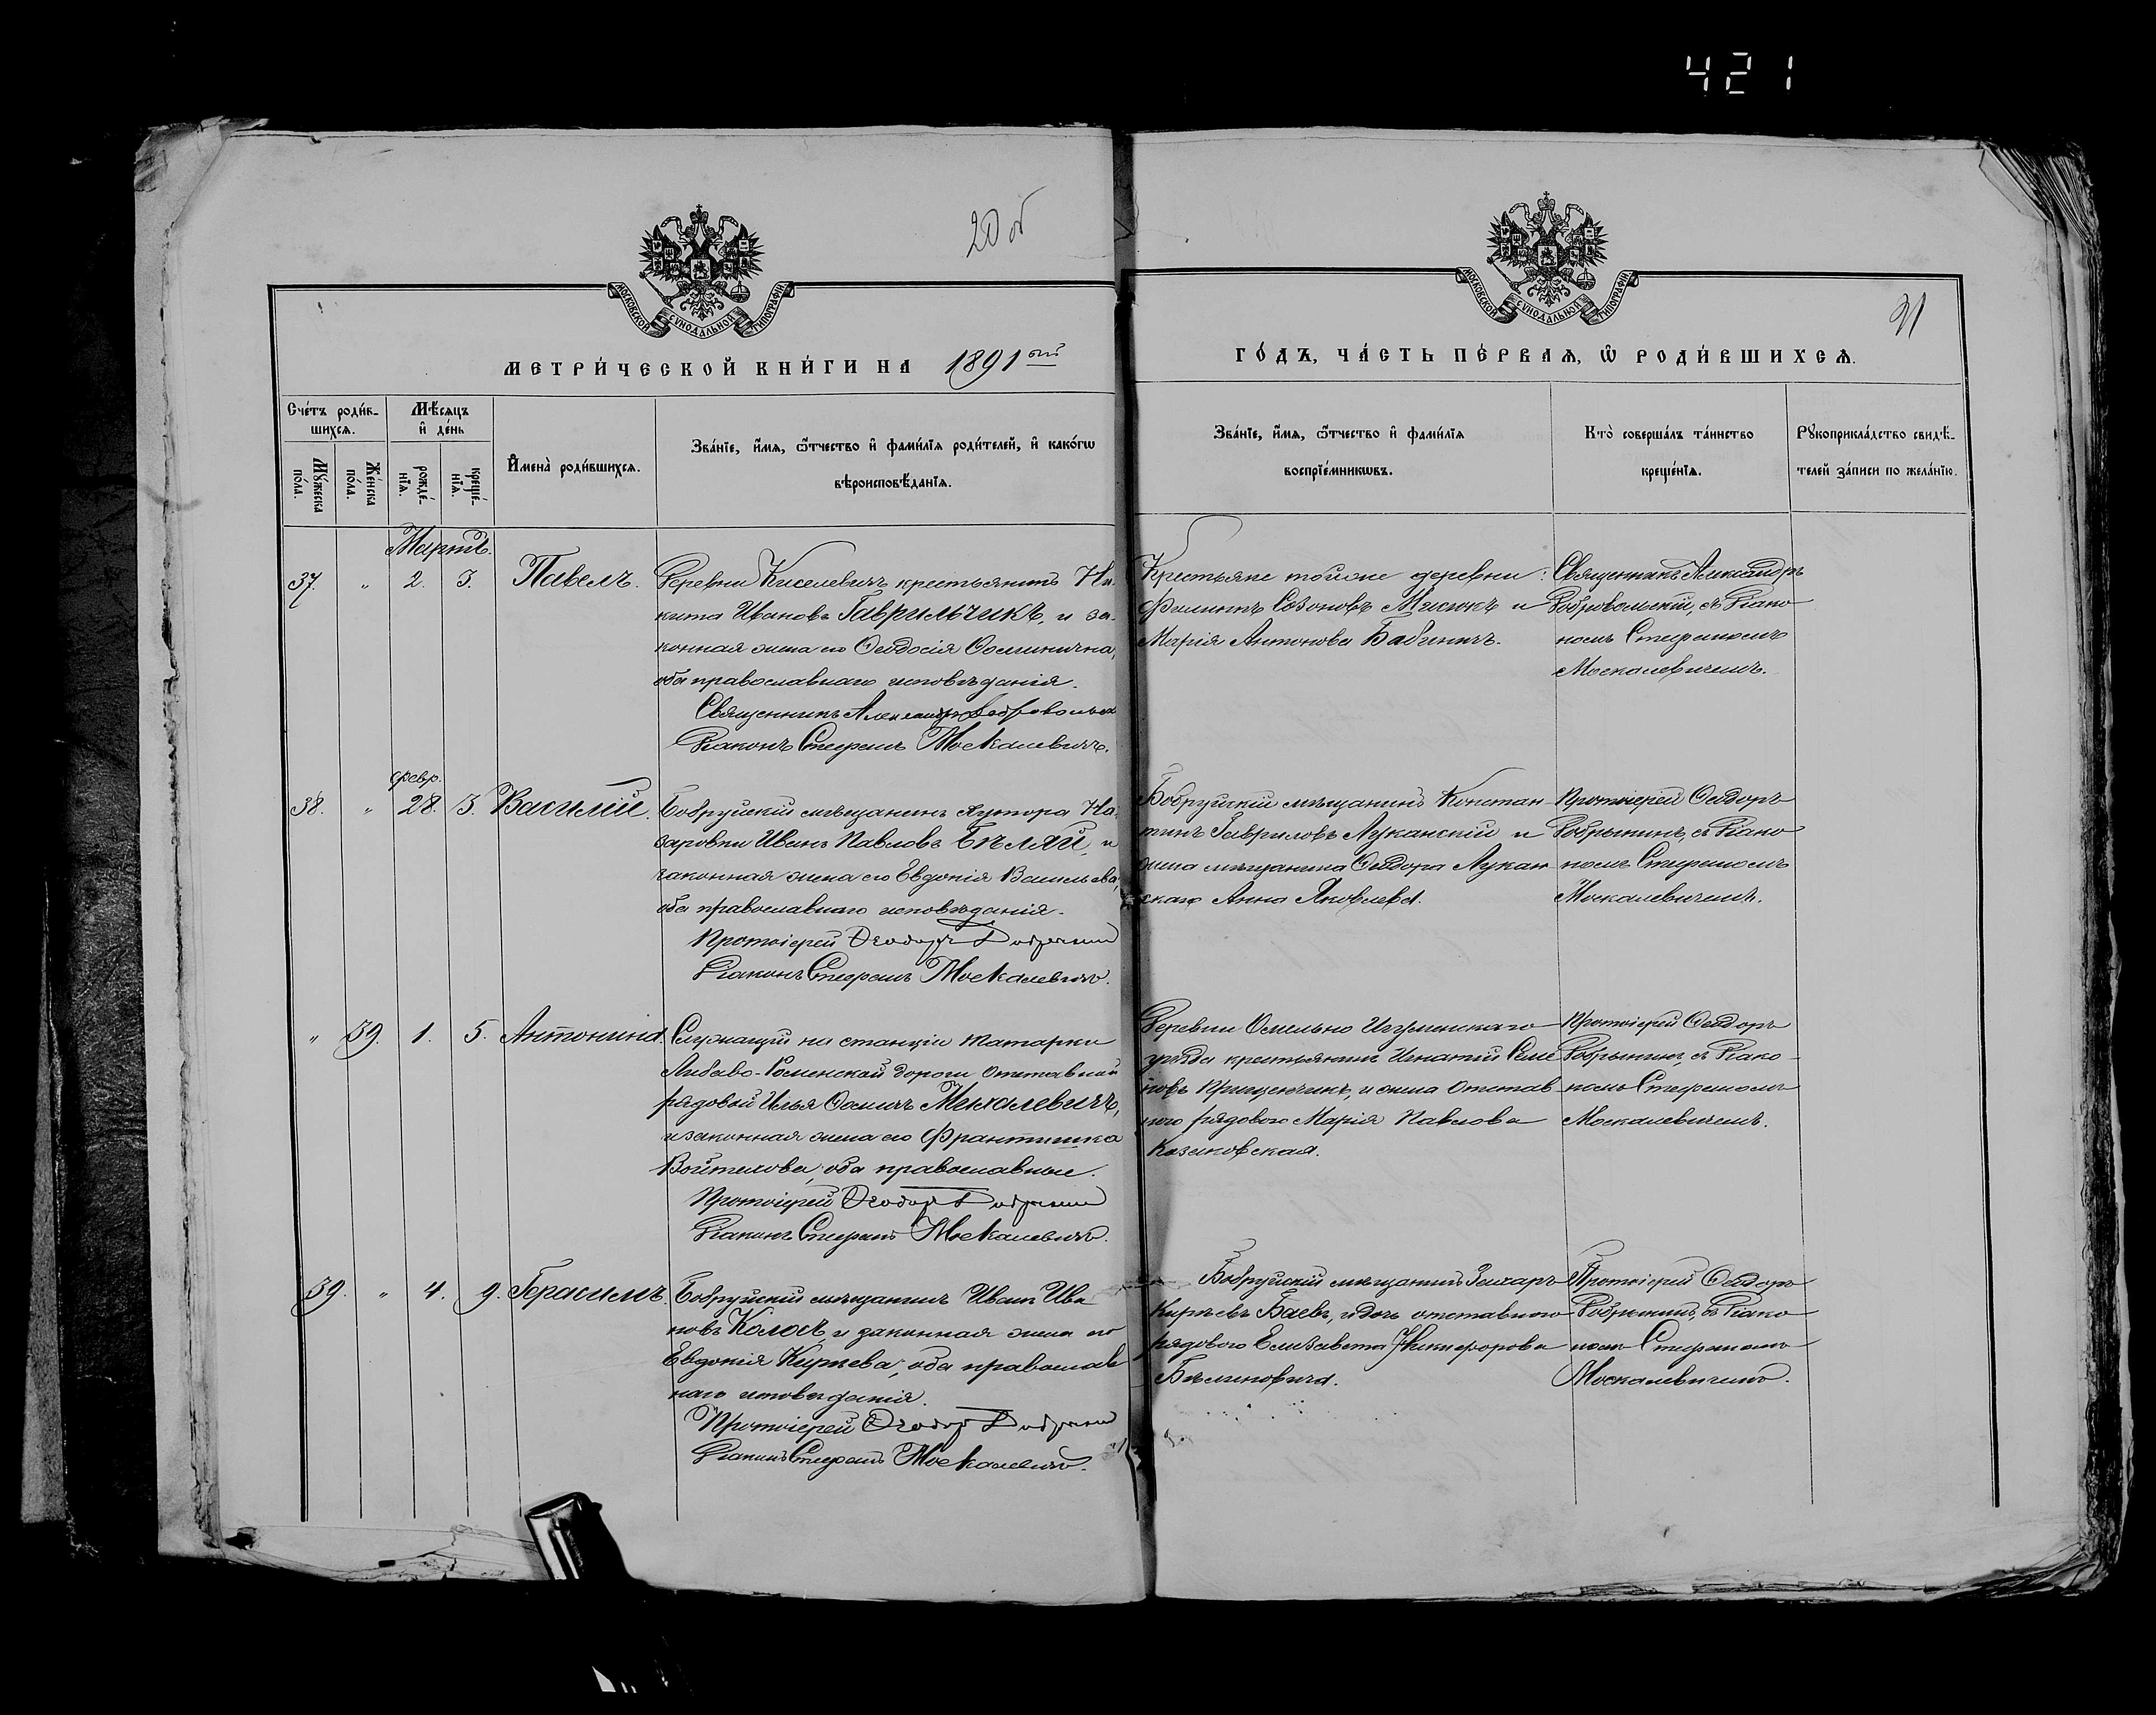 421
20 об
21
МОСКОВСКОЙ СѴНОДАЛЬНОЙ ТИПОГРАФІИ
МОСКОВСКОЙ СѴНОДАЛЬНОЙ ТИПОГРАФІИ
МЕТРИ́ЧЕСКОЙ КНИ́ГИ НА 1891 ый
ГО́ДЪ, ЧА́СТЬ ПЕ́РВАЯ, Ѿ РОДИ́ВШИХСЯ.
Сче́тъ роди́в-
шихсѧ.
Мѣ́сѧцъ
и҆ де́нь
Мꙋ́жеска
по́ла.
Же́нска
по́ла.
рожде́-
нїѧ.
креще́-
нїѧ.
И҆мена̀ роди́вшихсѧ.
Зва́нїе, и҆́мѧ, ѻ҆́тчество и҆ фами́лїѧ роди́телей, и҆ како́гѡ
вѣроисповѣ́данїѧ.
Зва́нїе, и҆́мѧ, ѻ҆́тчество и҆ фами́лїѧ
воспрїе́мникѡвъ.
Кто̀ соверша́лъ та́инство
креще́нїѧ.
Рꙋкоприкла́дство свидѣ́-
телей за́писи по жела́нїю.
Мартъ.
37. " 2. 3. Павелъ.
Деревни Киселевичъ крестьянинъ Ни-
кита Ивановъ Гаврильчикъ, и за-
конная жена его Ѳеодосія Осиминична,
оба православнаго исповѣданія.
Священникъ Александръ Добровольск
Діаконъ Стефанъ Москалевичъ.
Крестьяне тойже деревни:
Филиппъ Созоновъ Мисюкъ и
Марія Антонова Бабичичъ.
Священникъ Александръ
Добровольскій, съ Діако-
номъ Стефаномъ
Москалевичемъ.
февр.
38. " 28. 3. Василій.
Бобруйскій мѣщанинъ хутора На-
заровки Иванъ Павловъ Бѣляй, и
законная жена его Евдокія Васильева,
оба православнаго исповѣданія.
Протоіерей Ѳеодоръ Добрынин
Діаконъ Стефанъ Москалевичъ.
Бобруйскій мѣщанинъ Констан-
тинъ Гавриловъ Луканскій и
жена мѣщанина Ѳеодора Лукан
скаго Анна Яковлева.
Протоіерей Ѳеодоръ
Добрынинъ, съ Діако
номъ Стефаномъ
Москалевичемъ.
" 39. 1. 5. Антонина.
Служащій на станціи Татарки
Либаво-Роменской дороги отставной
рядовой Илья Осиповъ Михалевичъ,
и законная жена его Франтишка
Войтехова, оба православные.
Протоіерей Ѳеодоръ Добрынин
Діаконъ Стефанъ Москалевичъ.
Деревни Омельно Игуменскаго
уѣзда крестьянинъ Игнатій Семе
новъ Прищепчикъ, и жена отстав
ного рядового Марія Павлова
Козаковская.
Протоіерей Ѳеодоръ
Добрынинъ, съ Діако-
номъ Стефаномъ
Москалевичемъ.
39. " 4. 9. Герасимъ.
Бобруйскій мѣщанинъ Иванъ Ива
новъ Колосъ, и законная жена его
Евдокія Кирѣева, оба православ
наго исповѣданія.
Протоіерей Ѳеодоръ Добрынин
Діаконъ Стефанъ Москалевичъ.
Бобруйскій мѣщанинъ Захаръ
Кирѣевъ Баевъ, и дочь отставного
рядового Елизавета Никифорова
Бѣлиновича.
Протоіерей Ѳеодоръ
Добрынинъ, съ Діако
номъ Стефаномъ
Москалевичемъ.